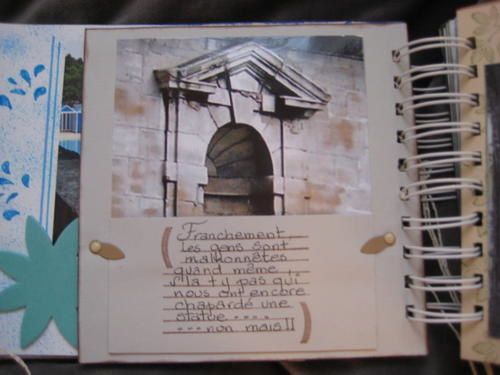 Franchement,
les gens sont
malhonnêtes
quand même !
s'la t'y pas qui
nous ont encore
chapardé une
statue ....
... non mais !!